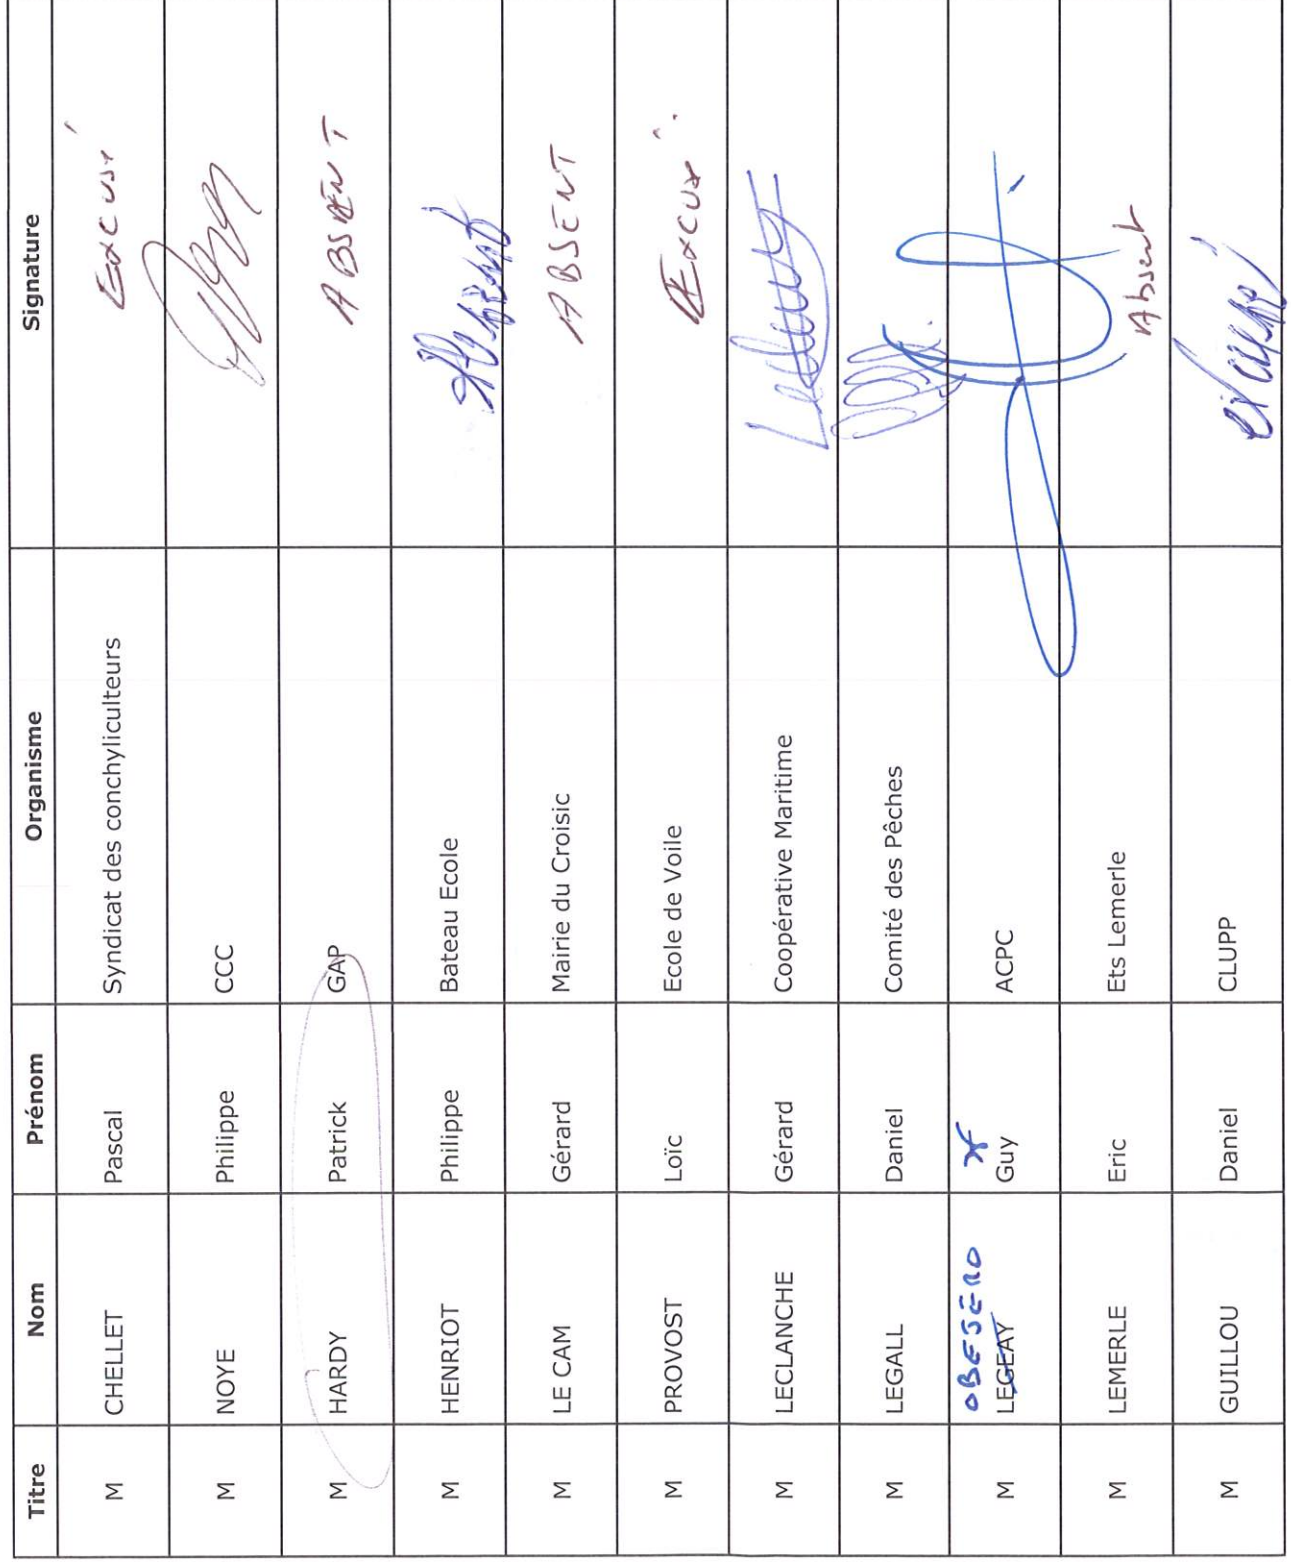 Titre Nom Prénom Organisme Signature
M CHELLET Pascal Syndicat des conchyliculteurs Excusé
M NOYE Philippe CCC
M HARDY Patrick GAP ABSENT
M HENRIOT Philippe Bateau Ecole
M LE CAM Gérard Mairie du Croisic ABSENT
M PROVOST Loïc Ecole de Voile Excusé
M LECLANCHE Gérard Coopérative Maritime
M LEGALL Daniel Comité des Pêches
OBESERO
M LEGEAY Guy ACPC
M LEMERLE Eric Ets Lemerle Absent
M GUILLOU Daniel CLUPP excusé